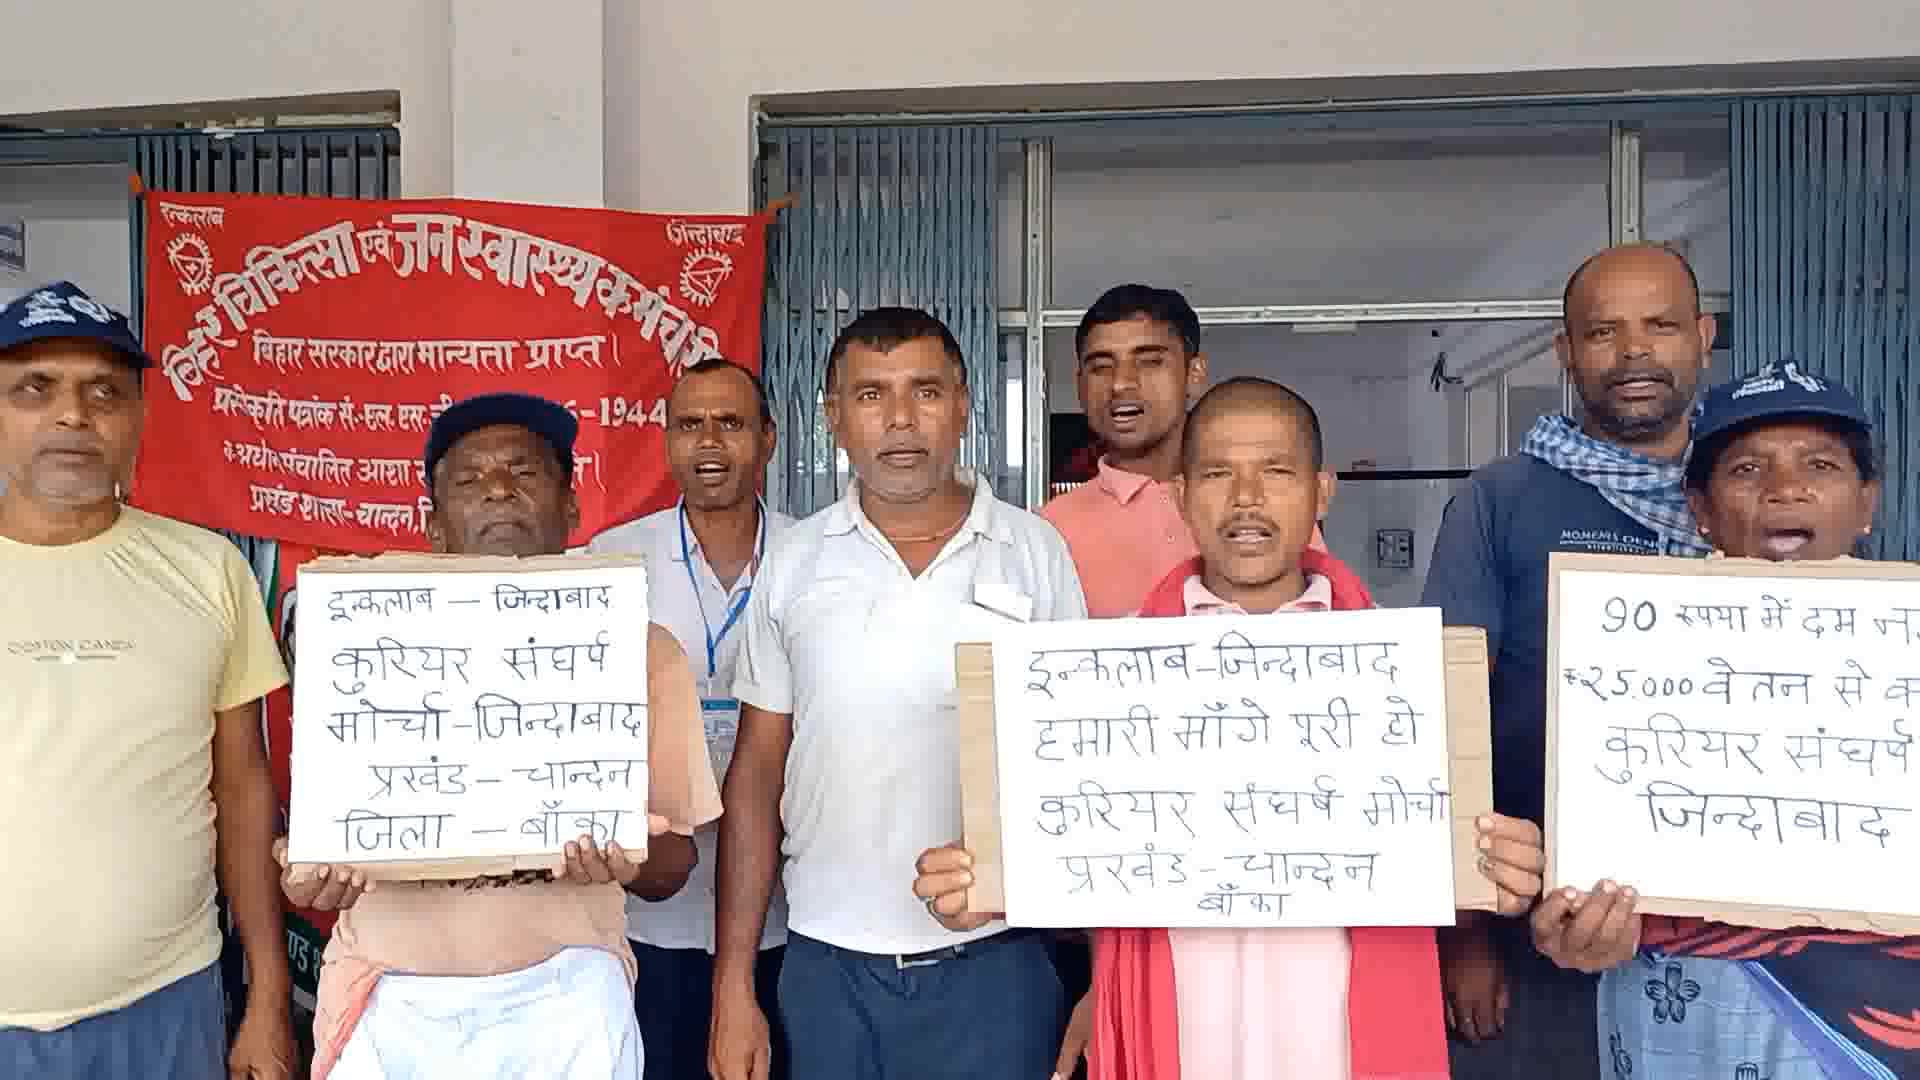 इन्कलाब जिन्दाबाद
बिहार चिकित्सा एवं जन स्वास्थ्य कर्मचारी
बिहार सरकार द्वारा मान्यता प्राप्त।
पत्रांक सं.-एल. एस. -1944
संचालित आशा
प्रखंड शाखा-चान्दन,
इन्कलाब - जिन्दाबाद
कुरियर संघर्ष
मोर्चा-जिन्दाबाद
प्रखंड - चान्दन
जिला - बाँका
इन्कलाब-जिन्दाबाद
हमारी माँगे पूरी हो
कुरियर संघर्ष मोर्चा
प्रखंड-चान्दन
बाँका
90 रूपया में दम
₹25.000 वेतन से
कुरियर संघर्ष
जिन्दाबाद
COTTON CANDY